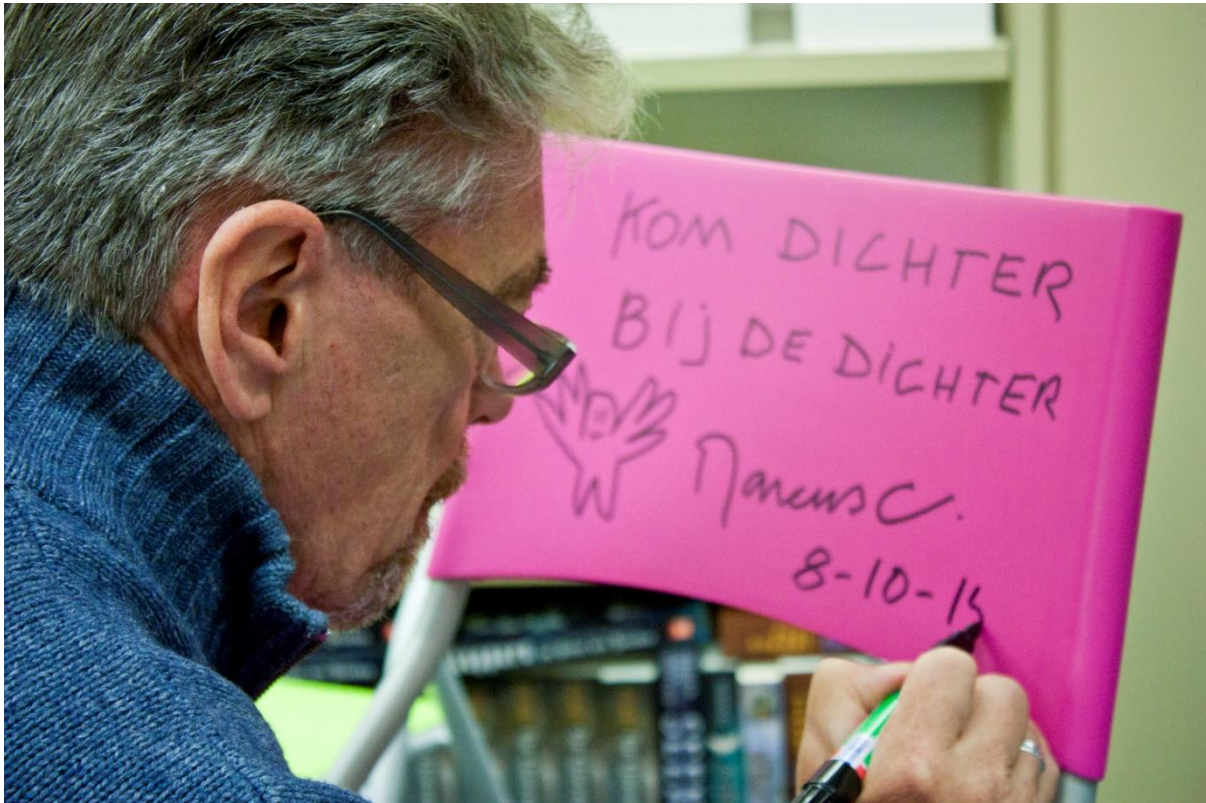 KOM DICHTER
BIJ DE DICHTER
Marcus C.
8-10-15